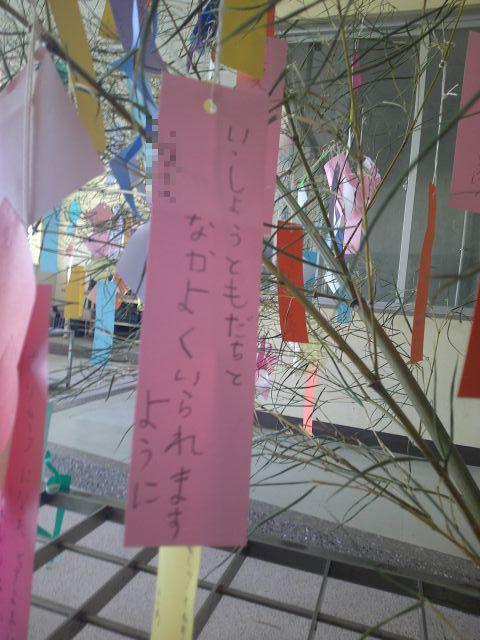 いしょうともだちと
なかよくいられます
ように